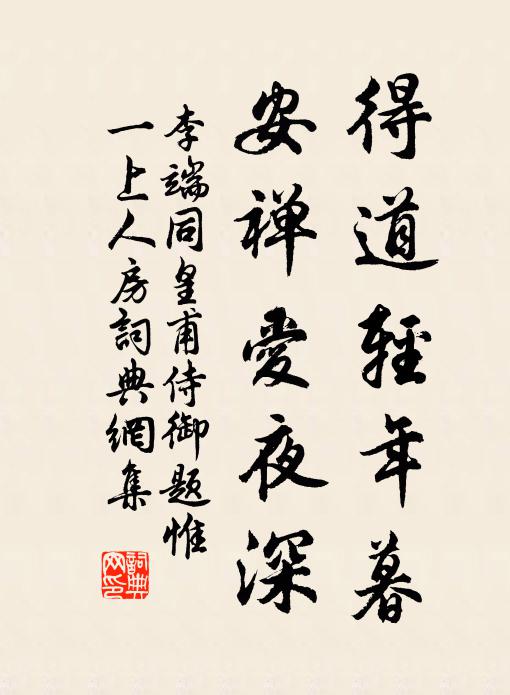 得道輕年暮
安禅愛夜深
李端同皇甫侍御题惟
一上人房詞典網集
詞典
网印